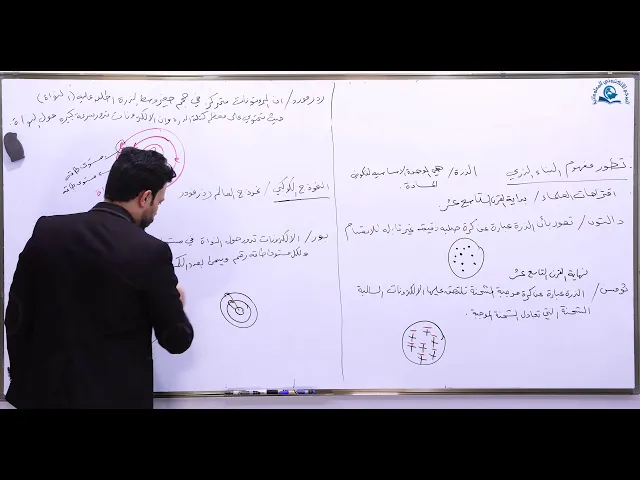 تطور مفهوم البناء الذري
الذرة / هي الوحدة الاساسية لتكوين
المادة.
اقتراحات العلماء / بداية القرن التاسع عشر
دالتون / تصور بأن الذرة عبارة عن كرة صلبة دقيقة غير قابله للانقسام
نهاية القرن التاسع عشر
ثومسن / الذرة عبارة عن كرة موجبة الشحنة تلتصق عليها الالكترونات السالبة
الشحنة التي تعادل الشحنة الموجبة.
رذرفورد / ان البروتونات تتمركز في حجم صغير وسط الذرة اطلق عليه (النواة)
حيث تحتوي على معظم كتلة الذرة وان الالكترونات تدور بسرعة كبيرة حول النواة.
مستوى طاقة
مستوى طاقة
النموذج الكوكبي / نموذج العالم رذرفورد
بور / الالكترونات تدور حول النواة في
ولكل مستوى طاقة رقم ويسمى بعدد الكم